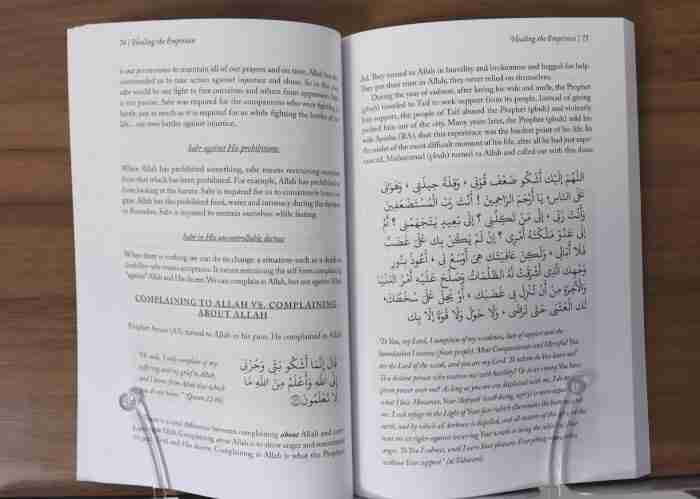 74 | Healing the Emptiness
is our perseverance to maintain all of our prayers and on time. Allah has also
commanded us to take action against injustice and abuse. So in this case
sabr would be our fight to free ourselves and others from oppression. Sabr
is not passive. Sabr was required for the companions who were fighting in
battle, just as much as it is required for us while fighting the battles of this
life... our own battles against injustice.
Sabr against His prohibitions:
When Allah has prohibited something, sabr means restraining ourselves
from that which has been prohibited. For example, Allah has prohibited us
from looking at the haram. Sabr is required for us to consistently lower our
gaze. Allah has also prohibited food, water and intimacy during the daytime
in Ramadan. Sabr is required to restrain ourselves while fasting.
Sabr in His uncontrollable decree
When there is nothing we can do to change a situation such as a death or
disability sabr means acceptance. It means restraining the self from complaining
"against" Allah and His decree. We can complain to Allah, but not against Allah.
COMPLAINING TO ALLAH VS. COMPLAINING
ABOUT ALLAH
Prophet Jacob (AS) turned to Allah in his pain. He complained to Allah
"He said, 'I only complain of my
suffering and my grief to Allah,
and I know from Allah that which
you do not know.'" (Quran 12:86)
قَالَ إِنَّمَا أَشْكُو بَثِّي وَحُزْنِي
إِلَى اللَّهِ وَأَعْلَمُ مِنَ اللَّهِ مَا
لَا تَعْلَمُونَ
There is a vital difference between complaining about Allah and com-
Complaining about Allah is to show anger and resentment
Allah and His decree. Complaining to Allah is what the Prophets
Healing the Emptiness | 75
did. They turned to Allah in humility and brokenness and begged for help.
They put their trust in Allah; they never relied on themselves.
During the year of sadness, after losing his wife and uncle, the Prophet
(pbuh) traveled to Taif to seek support from its people. Instead of giving
him support, the people of Taif abused the Prophet (pbuh) and violently
pushed him out of the city. Many years later, the Prophet (pbuh) told his
wife Ayesha (RA), that this experience was the hardest point of his life. In
the midst of the most difficult moment of his life, after all he had just expe-
rienced, Muhammad (pbuh) turned to Allah and called out with this duaa:
اللَّهُمَّ إِلَيْكَ أَشْكُو ضَعْفَ قُوَّتِي ، وَقِلَّةَ حِيلَتِي ، وَهَوَانِي
عَلَى النَّاسِ، يَا أَرْحَمَ الرَّاحِمِينَ ! أَنْتَ رَبُّ الْمُسْتَضْعَفِينَ
وَأَنْتَ رَبِّي ، إِلَى مَنْ تَكِلُنِي ؟ إِلَى بَعِيدٍ يَتَجَهَّمُنِي ؟ أَمْ
إِلَى عَدُوٍّ مَلَّكْتَهُ أَمْرِي ؟ إِنْ لَمْ يَكُنْ بِكَ عَلَيَّ غَضَبٌ
فَلَا أُبَالِي ، وَلَكِنْ عَافِيَتُكَ هِيَ أَوْسَعُ لِي ، أَعُوذُ بِنُورِ
وَجْهِكَ الَّذِي أَشْرَقَتْ لَهُ الظُّلُمَاتُ وَصَلُحَ عَلَيْهِ أَمْرُ الدُّنْيَا
وَالْآخِرَةِ مِنْ أَنْ تُنْزِلَ بِي غَضَبَكَ ، أَوْ يَحِلَّ عَلَيَّ سَخَطُكَ،
لَكَ الْعُتْبَى حَتَّى تَرْضَى ، وَلَا حَوْلَ وَلَا قُوَّةَ إِلَّا بِكَ
"To You, my Lord, I complain of my weakness, lack of support and the
humiliation I receive (from people). Most Compassionate and Merciful! You
are the Lord of the weak, and you are my Lord. To whom do You leave me?
To a distant person who receives me with hostility? Or to an enemy You have
given power over me? As long as you are not displeased with me, I do not care
what I face. However, Your
me. I seek refuge in the Light of Your face (which illuminates the heavens and
earth, and by which all darkness is dispelled, and all
anger. To You I submit, until I earn Your pleasure. Everything
without Your support."